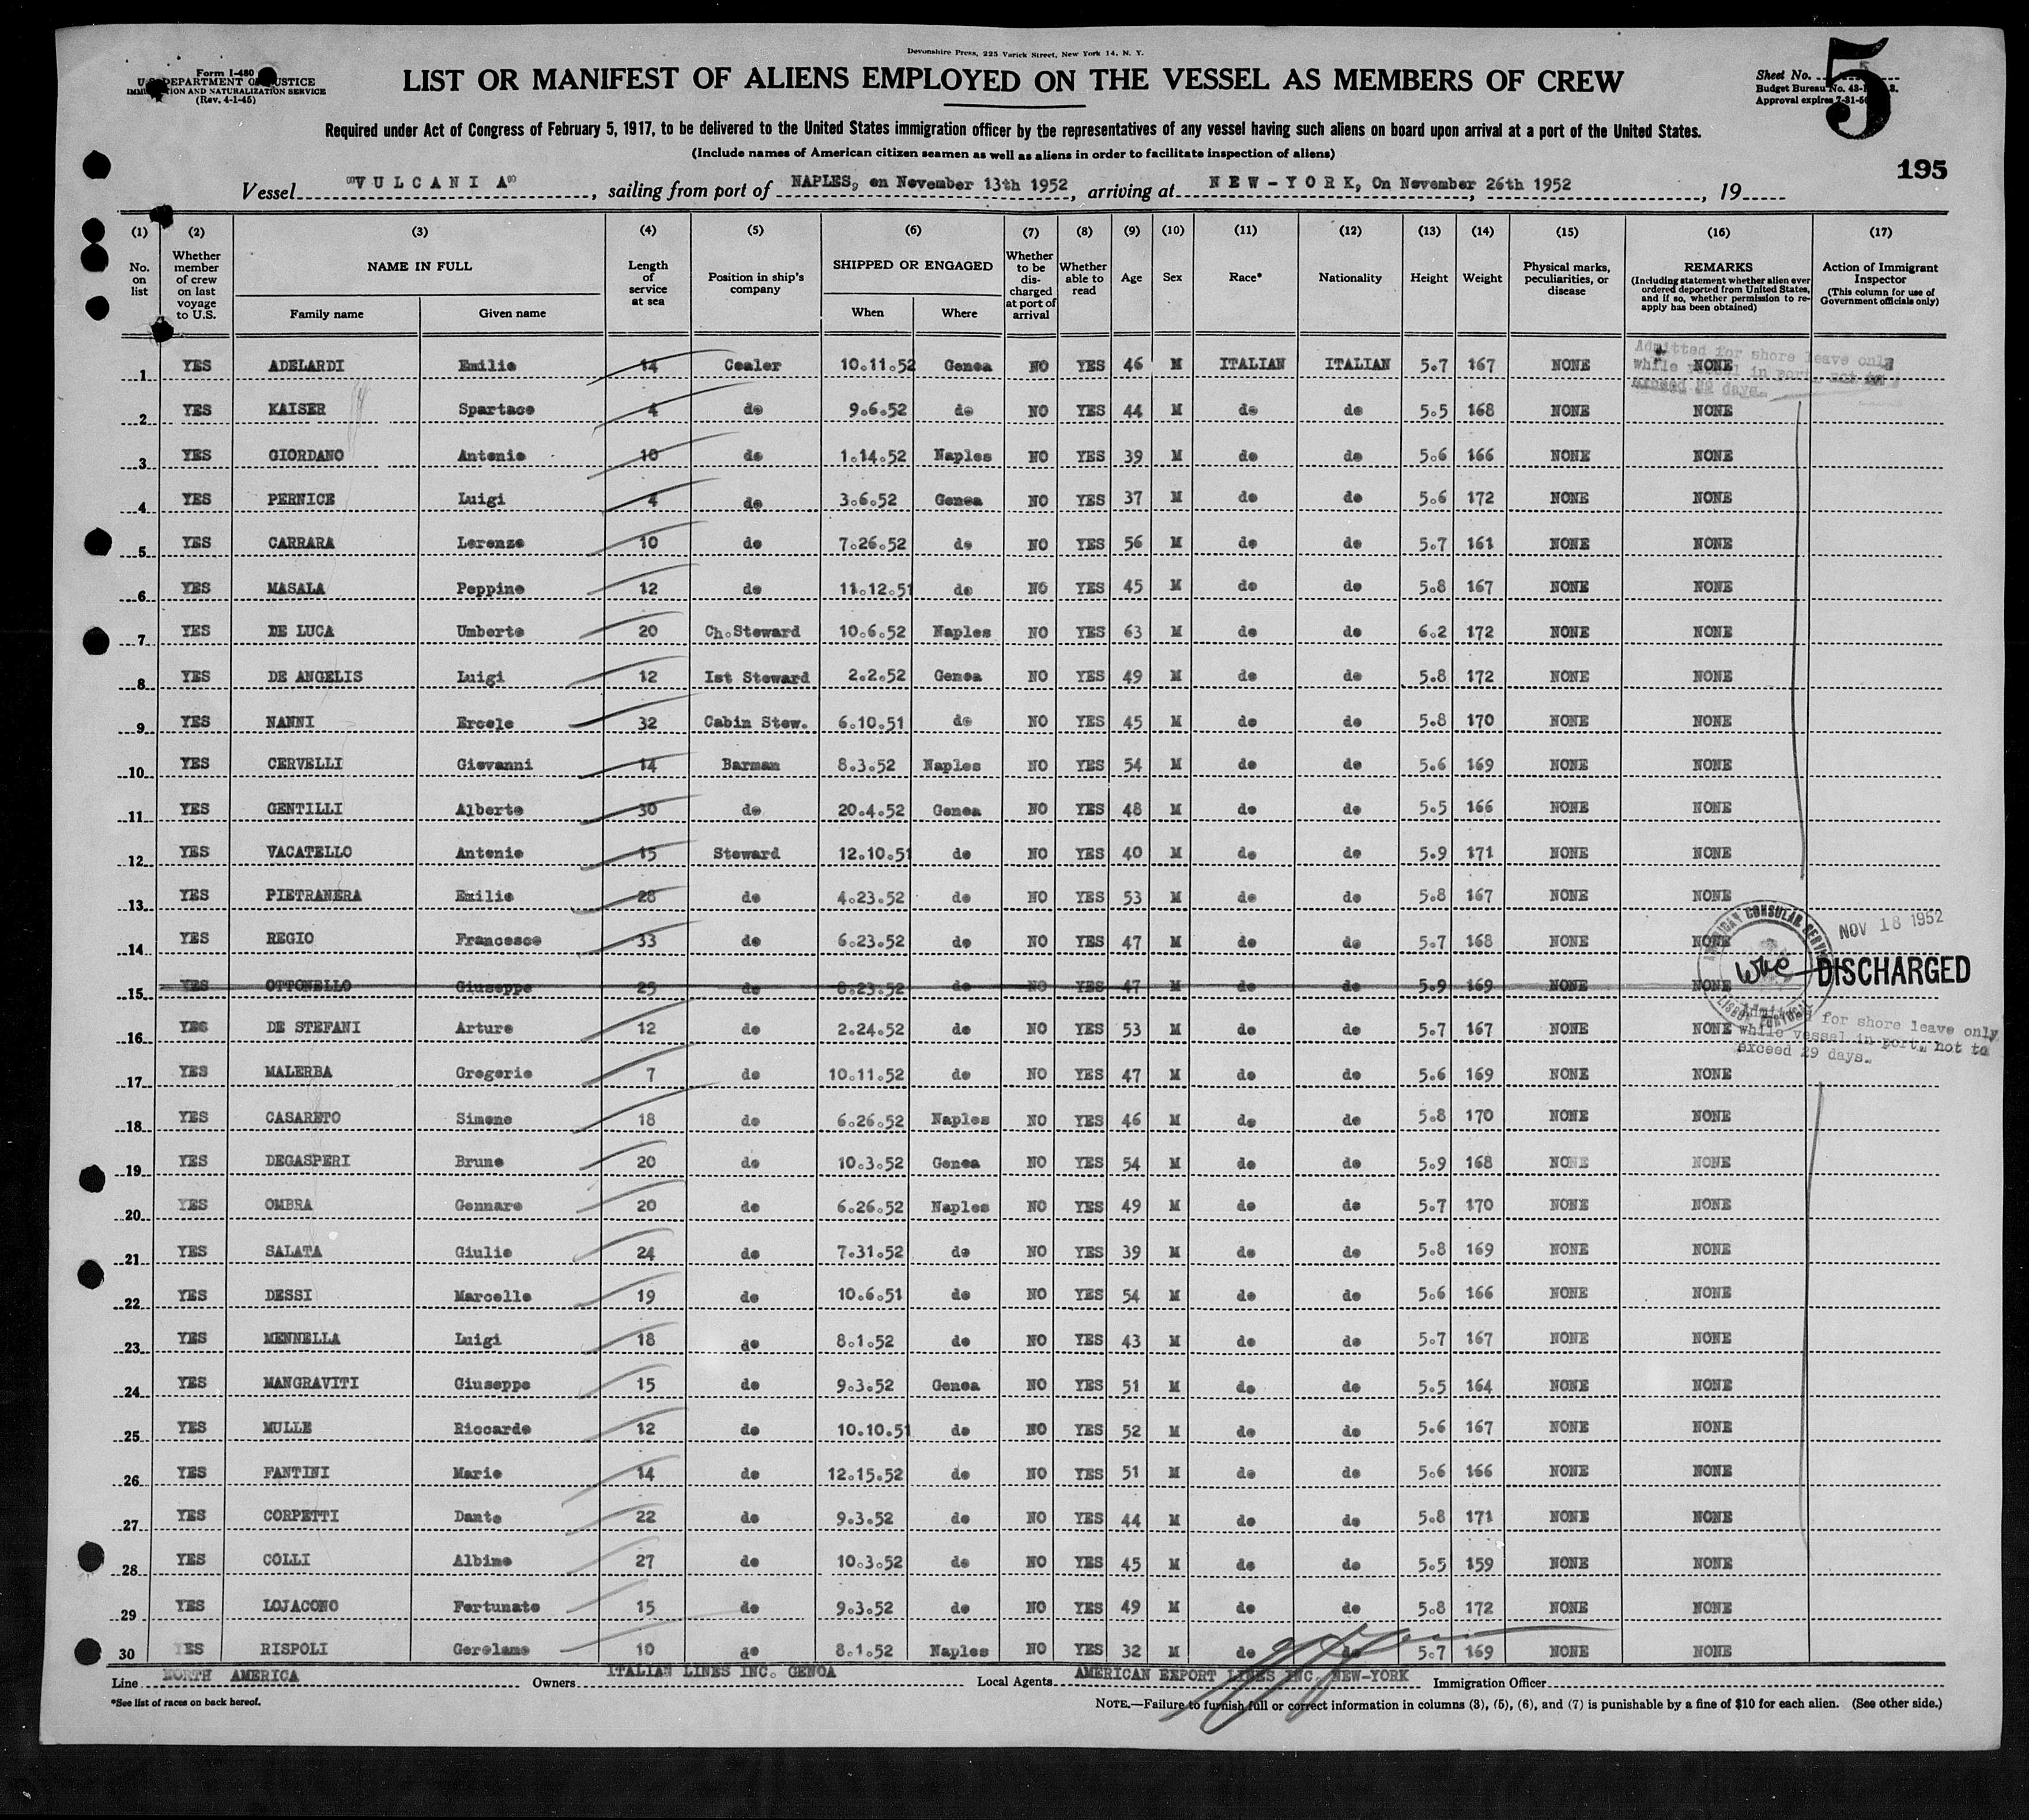 Devonshire Press, 225 Varick Street, New York 14, N. Y.
Form I-480
U. S. DEPARTMENT OF JUSTICE
IMMIGRATION AND NATURALIZATION SERVICE
(Rev. 4-1-45)
LIST OR MANIFEST OF ALIENS EMPLOYED ON THE VESSEL AS MEMBERS OF CREW
Sheet No. 5
Budget Bureau No. 43-
Approval expires 7-31-
5
Required under Act of Congress of February 5, 1917, to be delivered to the United States immigration officer by the representatives of any vessel having such aliens on board upon arrival at a port of the United States.
(Include names of American citizen seamen as well as aliens in order to facilitate inspection of aliens)
195
Vessel "VULCANIA", sailing from port of NAPLES, on November 13th 1952, arriving at NEW-YORK, On November 26th 1952, 19
(1) (2) (3) (4) (5) (6) (7) (8) (9) (10) (11) (12) (13) (14) (15) (16) (17)
No. on list
Whether member of crew on last voyage to U.S.
NAME IN FULL
Family name Given name
Length of service at sea
Position in ship's company
SHIPPED OR ENGAGED
When Where
Whether to be discharged at port of arrival
Whether able to read
Age
Sex
Race*
Nationality
Height
Weight
Physical marks, peculiarities, or disease
REMARKS
(Including statement whether alien ever ordered deported from United States, and if so, whether permission to re-apply has been obtained)
Action of Immigrant Inspector
(This column for use of Government officials only)
Admitted for shore leave only
while vessel in port, not to
exceed 29 days.
1 YES ADELARDI Emilio 14 Cealer 10.11.52 Genoa NO YES 46 M ITALIAN ITALIAN 5.7 167 NONE NONE
2 YES KAISER Spartaco 4 do 9.6.52 do NO YES 44 M do do 5.5 168 NONE NONE
3 YES GIORDANO Antonio 10 do 1.14.52 Naples NO YES 39 M do do 5.6 166 NONE NONE
4 YES PERNICE Luigi 4 do 3.6.52 Genoa NO YES 37 M do do 5.6 172 NONE NONE
5 YES CARRARA Lorenzo 10 do 7.26.52 do NO YES 56 M do do 5.7 161 NONE NONE
6 YES MASALA Peppino 12 do 11.12.51 do NO YES 45 M do do 5.8 167 NONE NONE
7 YES DE LUCA Umberto 20 Ch.Steward 10.6.52 Naples NO YES 63 M do do 6.2 172 NONE NONE
8 YES DE ANGELIS Luigi 12 Ist Steward 2.2.52 Genoa NO YES 49 M do do 5.8 172 NONE NONE
9 YES NANNI Ercole 32 Cabin Stew. 6.10.51 do NO YES 45 M do do 5.8 170 NONE NONE
10 YES CERVELLI Giovanni 14 Barman 8.3.52 Naples NO YES 54 M do do 5.6 169 NONE NONE
11 YES GENTILLI Alberto 30 do 20.4.52 Genoa NO YES 48 M do do 5.5 166 NONE NONE
12 YES VACATELLO Antonio 15 Steward 12.10.51 do NO YES 40 M do do 5.9 171 NONE NONE
13 YES PIETRANERA Emilio 28 do 4.23.52 do NO YES 53 M do do 5.8 167 NONE NONE
14 YES REGIO Francesco 33 do 6.23.52 do NO YES 47 M do do 5.7 168 NONE NONE
AMERICAN CONSULAR SERVICE
LISBON PORTUGAL
NOV 18 1952
DISCHARGED
15 YES OTTONELLO Giuseppe 25 do 8.23.52 do NO YES 47 M do do 5.9 169 NONE NONE
16 YES DE STEFANI Arturo 12 do 2.24.52 do NO YES 53 M do do 5.7 167 NONE NONE
Admitted for shore leave only
while vessel in port, not to
exceed 29 days.
17 YES MALERBA Gregorio 7 do 10.11.52 do NO YES 47 M do do 5.6 169 NONE NONE
18 YES CASARETO Simone 18 do 6.26.52 Naples NO YES 46 M do do 5.8 170 NONE NONE
19 YES DEGASPERI Bruno 20 do 10.3.52 Genoa NO YES 54 M do do 5.9 168 NONE NONE
20 YES OMBRA Gennaro 20 do 6.26.52 Naples NO YES 49 M do do 5.7 170 NONE NONE
21 YES SALATA Giulio 24 do 7.31.52 do NO YES 39 M do do 5.8 169 NONE NONE
22 YES DESSI Marcello 19 do 10.6.51 do NO YES 54 M do do 5.6 166 NONE NONE
23 YES MENNELLA Luigi 18 do 8.1.52 do NO YES 43 M do do 5.7 167 NONE NONE
24 YES MANGRAVITI Giuseppe 15 do 9.3.52 Genoa NO YES 51 M do do 5.5 164 NONE NONE
25 YES MULLE Riccardo 12 do 10.10.51 do NO YES 52 M do do 5.6 167 NONE NONE
26 YES FANTINI Mario 14 do 12.15.52 do NO YES 51 M do do 5.6 166 NONE NONE
27 YES CORPETTI Dante 22 do 9.3.52 do NO YES 44 M do do 5.8 171 NONE NONE
28 YES COLLI Albino 27 do 10.3.52 do NO YES 45 M do do 5.5 159 NONE NONE
29 YES LOJACONO Fortunato 15 do 9.3.52 do NO YES 49 M do do 5.8 172 NONE NONE
30 YES RISPOLI Gerolamo 10 do 8.1.52 Naples NO YES 32 M do do 5.7 169 NONE NONE
Line NORTH AMERICA Owners ITALIAN LINES INC. GENOA Local Agents AMERICAN EXPORT LINES INC. NEW-YORK Immigration Officer
*See list of races on back hereof.
NOTE.—Failure to furnish full or correct information in columns (3), (5), (6), and (7) is punishable by a fine of $10 for each alien. (See other side.)